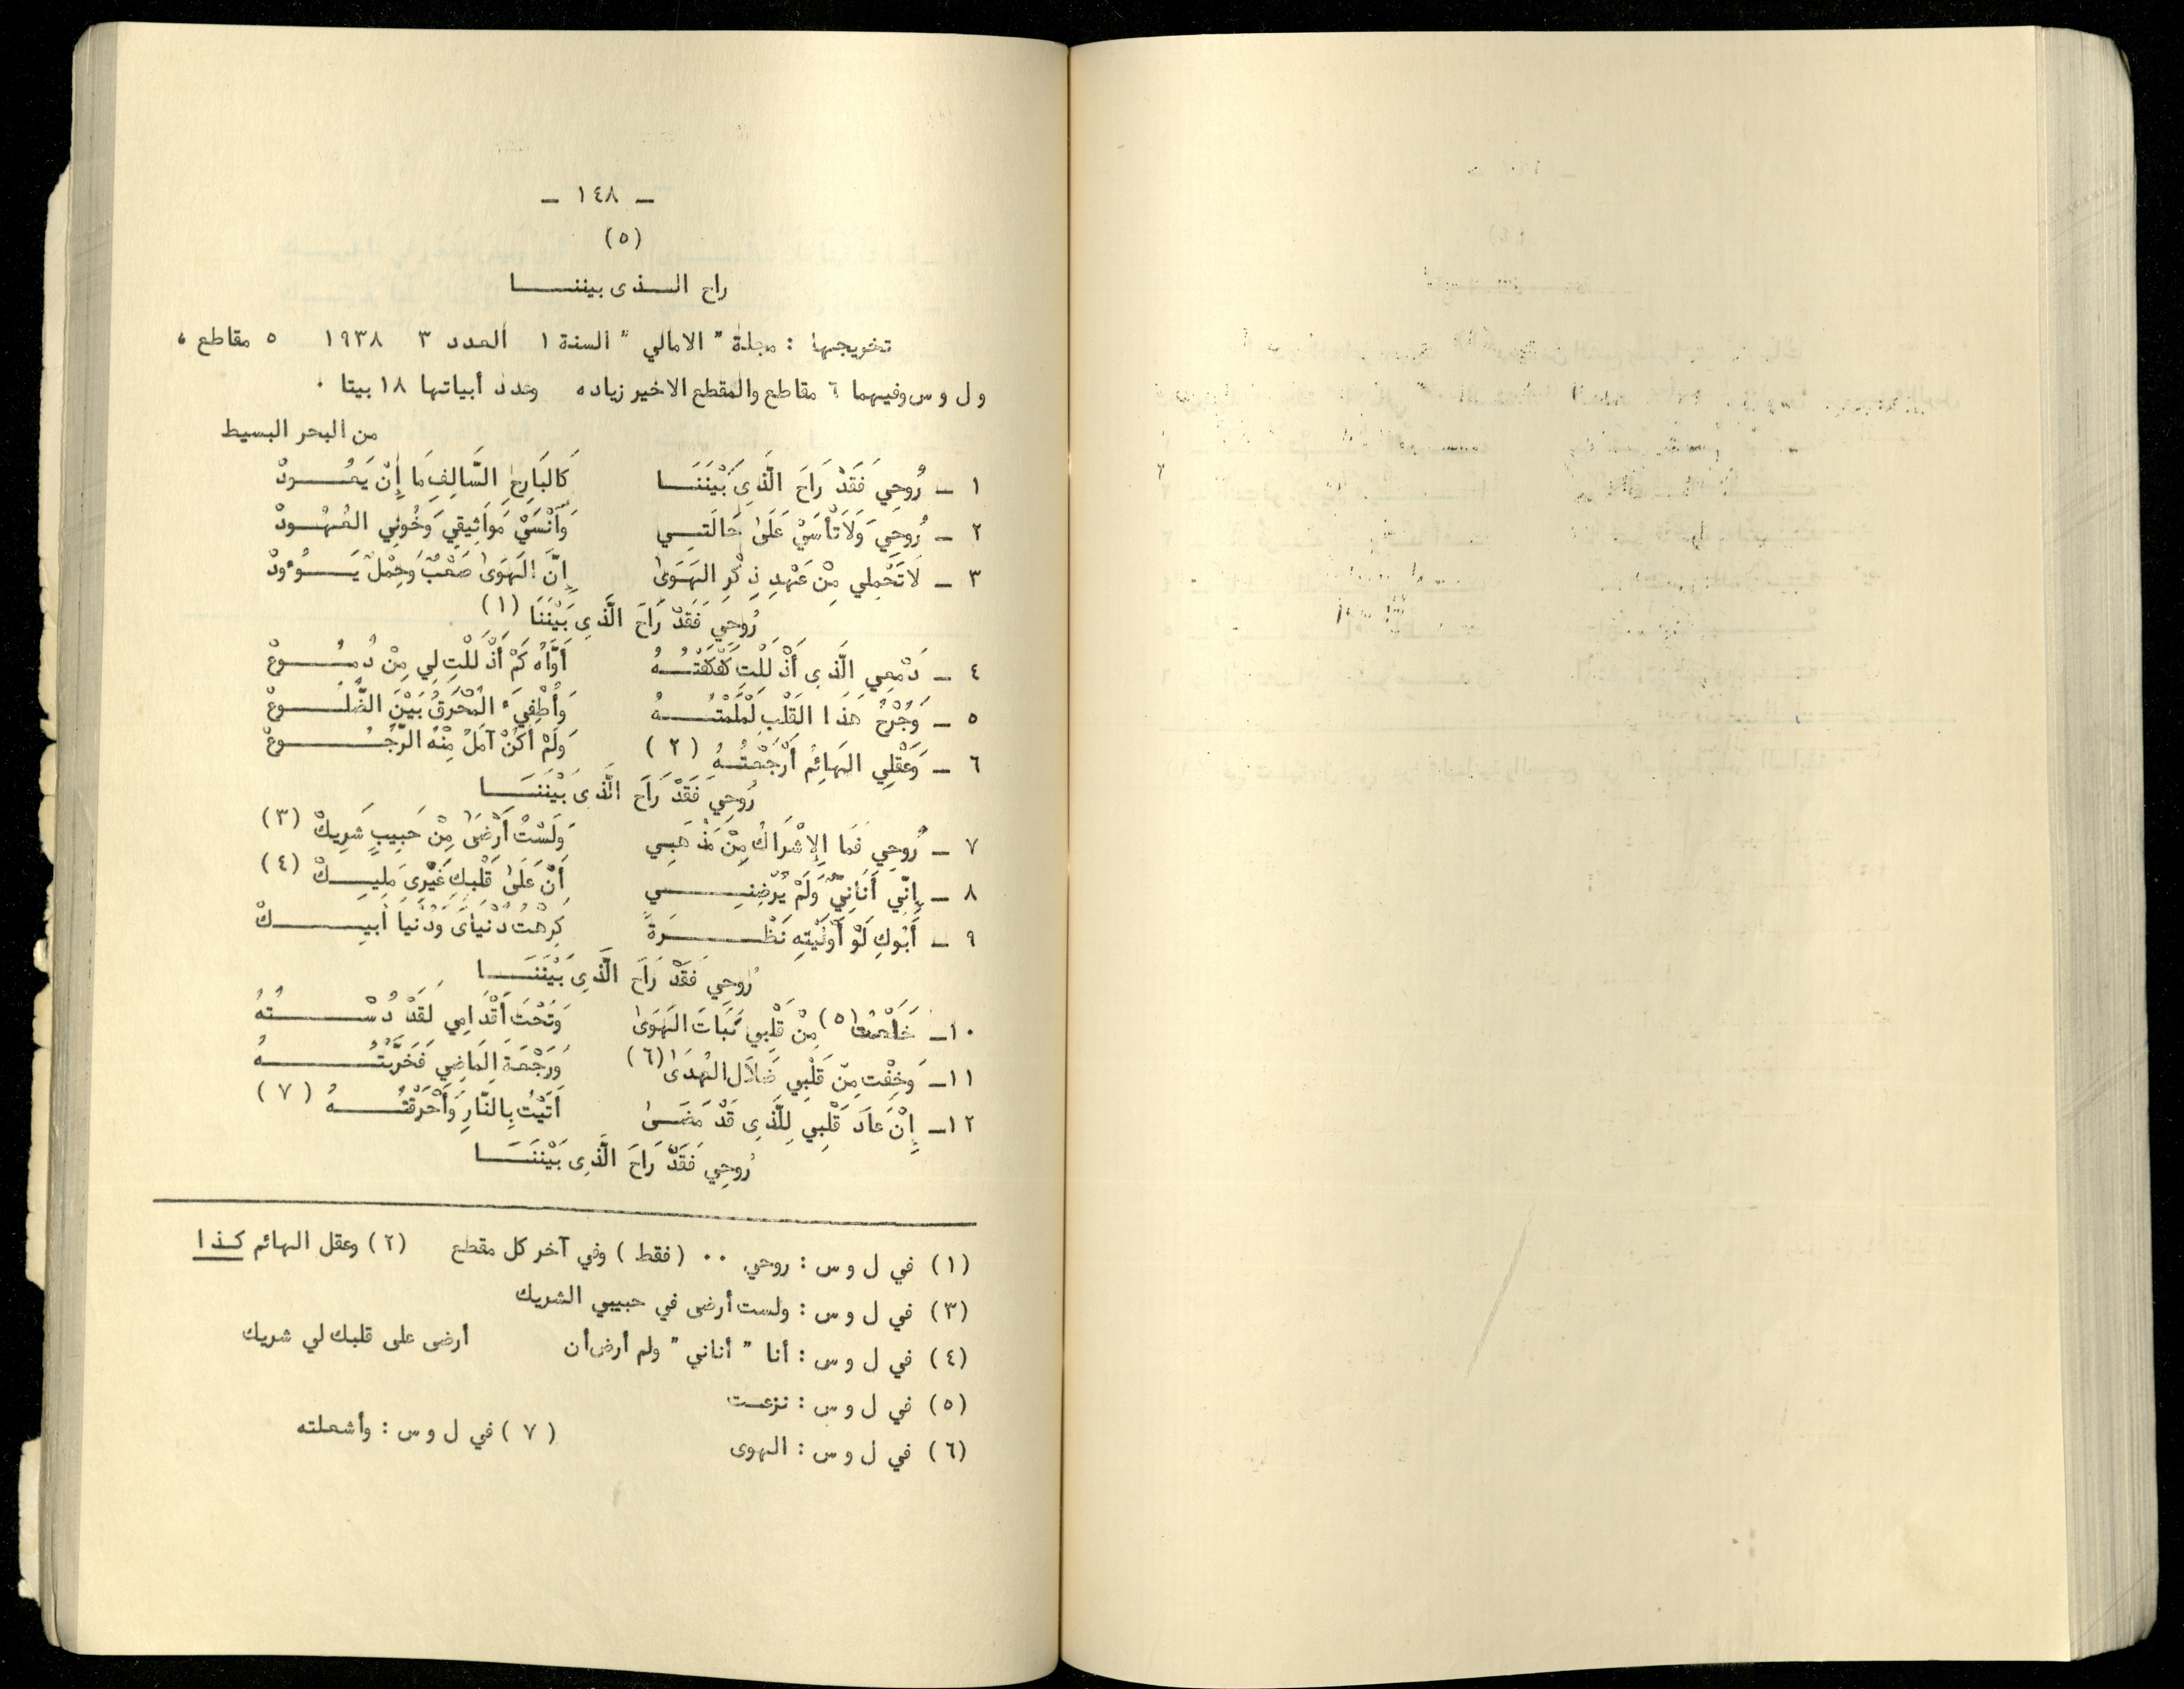 — ١٤٨ —
(٥)
راح الـــذى بيننـــــا
تخريجها : مجلة " الامالي " السنة ١ العدد ٣ ١٩٣٨ ٥ مقاطع ،
و ل و س وفيهما ٦ مقاطع والمقطع الاخير زياده وعدد أبياتها ١٨ بيتا .
من البحر البسيط
١ ـ رُوحِي فَقَدْ رَاحَ الَّذِى بَيْنَنَـــا كَالبَارِحِ السَّالِفِ مَا إِنْ يَعُـــودْ
٢ ـ رُوحِي وَلَا تَأْسَيْ عَلَىٰ حَالَتِـــي وَآنْسَيْ مَوَاثِيقِي وَخُونِي العُهُـــودْ
٣ ـ لَا تَحْمِلِي مِنْ عَهْدِ ذِكْرِ الهَوَىٰ إِنَّ الهَوَىٰ صَعْبٌ وَحِمْلٌ يَـــؤُودْ
رُوحِي فَقَدْ رَاحَ الَّذِى بَيْنَنَا (١)
٤ ـ دَمْعِي الَّذِى أَذْلَلْتِ كَفْكَفْتُـــهُ أَوَّاهُ كَمْ أَذْلَلْتِ لِي مِنْ دُمُـــوعْ
٥ ـ وَجُرْحُ هَذَا القَلْبِ لَمْلَمْتُـــهُ وَأُطْفِئَ المُحْرَقُ بَيْنَ الضُّلُـــوعْ
٦ ـ وَعَقْلِي الهَائِمُ أَرْجَعْتُـــهُ (٢) وَلَمْ أَكُنْ آمَلُ مِنْهُ الرُّجُـــوعْ
رُوحِي فَقَدْ رَاحَ الَّذِى بَيْنَنَـــا
٧ ـ رُوحِي فَمَا الإِشْرَاكُ مِنْ مَذْهَبِـي وَلَسْتُ أَرْضَىٰ مِنْ حَبِيبٍ شَرِيكْ (٣)
٨ ـ إِنِّي أَنَانِيٌّ وَلَمْ يُرْضِنِـــي أَنَّ عَلَىٰ قَلْبِكِ غَيْرِى مَلِيـــكْ (٤)
٩ ـ أَبُوكِ لَوْ أَوْلَيْتِهِ نَظْـــرَةً كَرِهْتُ دُنْيَاىَ وَدُنْيَا أَبِيـــكْ
رُوحِي فَقَدْ رَاحَ الَّذِى بَيْنَنَـــا
١٠ـ خَلَعْتُ (٥) مِنْ قَلْبِي نَبَاتَ الهَوَىٰ وَتَحْتَ أَقْدَامِي لَقَدْ دُسْـــتُهُ
١١ـ وَخِفْتُ مِنْ قَلْبِي ضَلَالَ الهُدَىٰ (٦) وَرَجْعَةَ المَاضِي فَخَرَّبْتُـــهُ
١٢ـ إِنْ عَادَ قَلْبِي لِلَّذِى قَدْ مَضَـــىٰ أَتَيْتُ بِالنَّارِ وَأَحْرَقْتُـــهُ (٧)
رُوحِي فَقَدْ رَاحَ الَّذِى بَيْنَنَـــا
(١) في ل و س : روحي .. (فقط) وفي آخر كل مقطع (٢) وعقل الهائم كـذا
(٣) في ل و س : ولست أرضى في حبيبي الشريك
(٤) في ل و س : أنا " أناني " ولم أرض أن أرضى على قلبك لي شريك
(٥) في ل و س : نزعت
(٦) في ل و س : الهوى (٧) في ل و س : وأشعلته